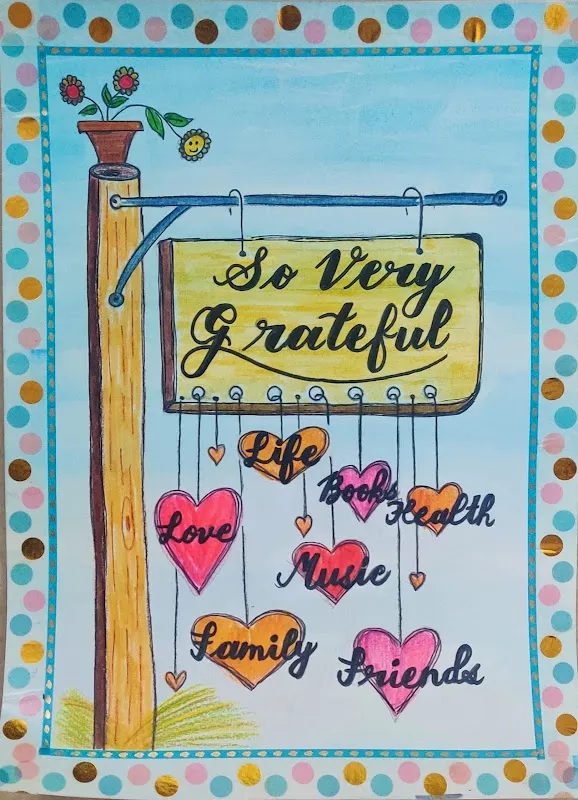 So Very
Grateful
Life
Books
Health
Love
Music
Family
Friends